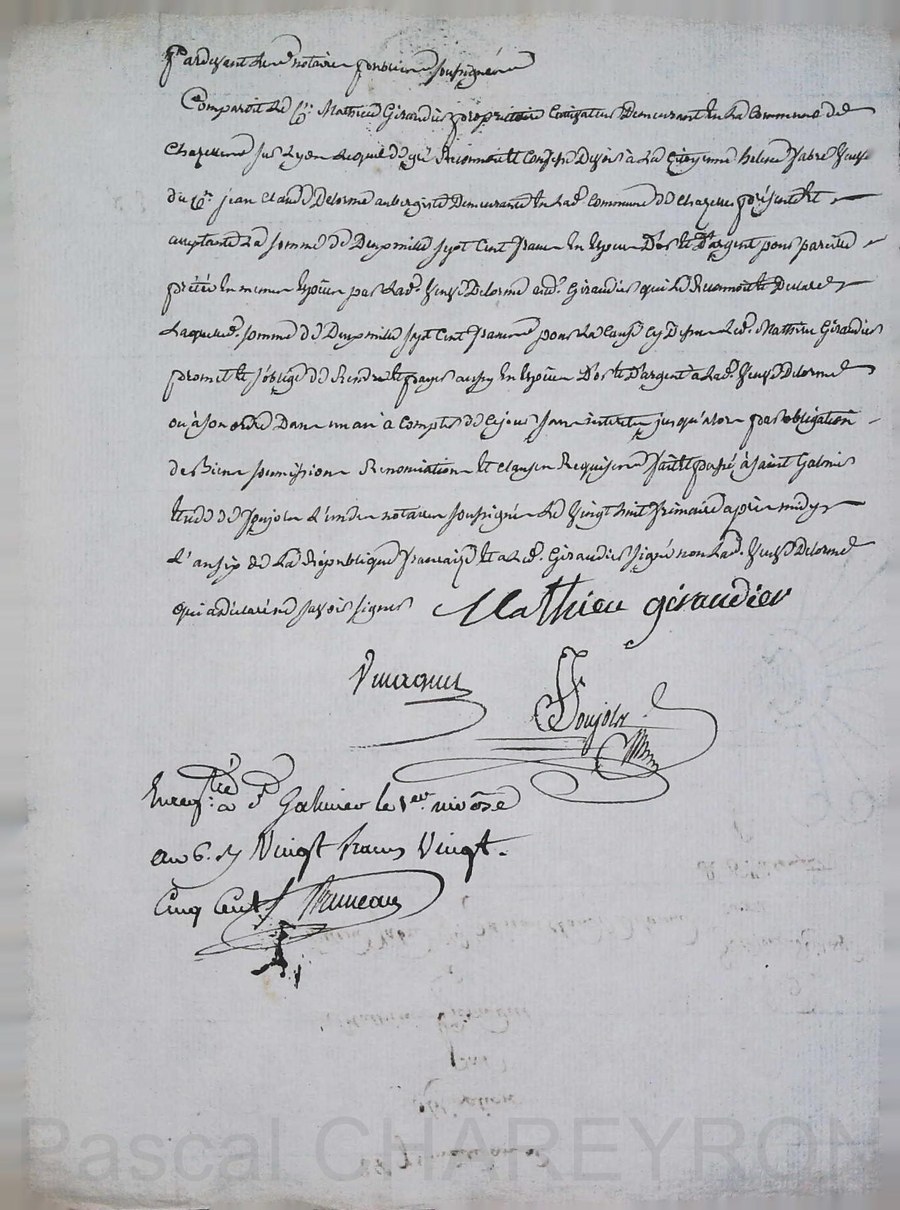 Pardevant les notaires publics soussignés
Comparoit le C.en Mathieu Giraudier propriétaire Cultivateur Demeurant En la Commune de
Chazelles sur Lyon lequel de gré Reconnoit et Confesse Devoir à la Citoyenne helene fabre veuve
du C.en jean Claude Delorme aubergiste Demeurante En lad. Commune de Chazelles présente et
acceptante la somme de Deux mille sept Cent francs En Espèces D'or et D'argent pour pareille
prêtée En mêmes Espèces par lad. veuve Delorme aud. Giraudier qui le Reconnoit et Declare
Laquelle somme de Deux mille sept Cent francs pour la Cause cy Dessus led. Mathieu Giraudier
promet et s'oblige de Rendre et payer aussy En Espèces D'or et D'argent à lad. veuve Delorme
ou à son ordre Dans un an à Compter de Ce jour sans interets jusqu'alors par obligation
de Biens soumissions Renonciations et clauses Requises fait et passé à saint Galmier
Etude de Poujolx l'un des notaires soussignés le vingt huit frimaire après midy
L'an six de la République francaise et a led. Giraudier signé non lad. veuve Delorme
qui a déclaré ne savoir signer Mathieu géraudier
Poujolx
Enreg.tré à St Galmier le 1er nivôse
an 6. R Vingt francs Vingt
Cinq Cent. Bruneau
Pascal CHAREYRON